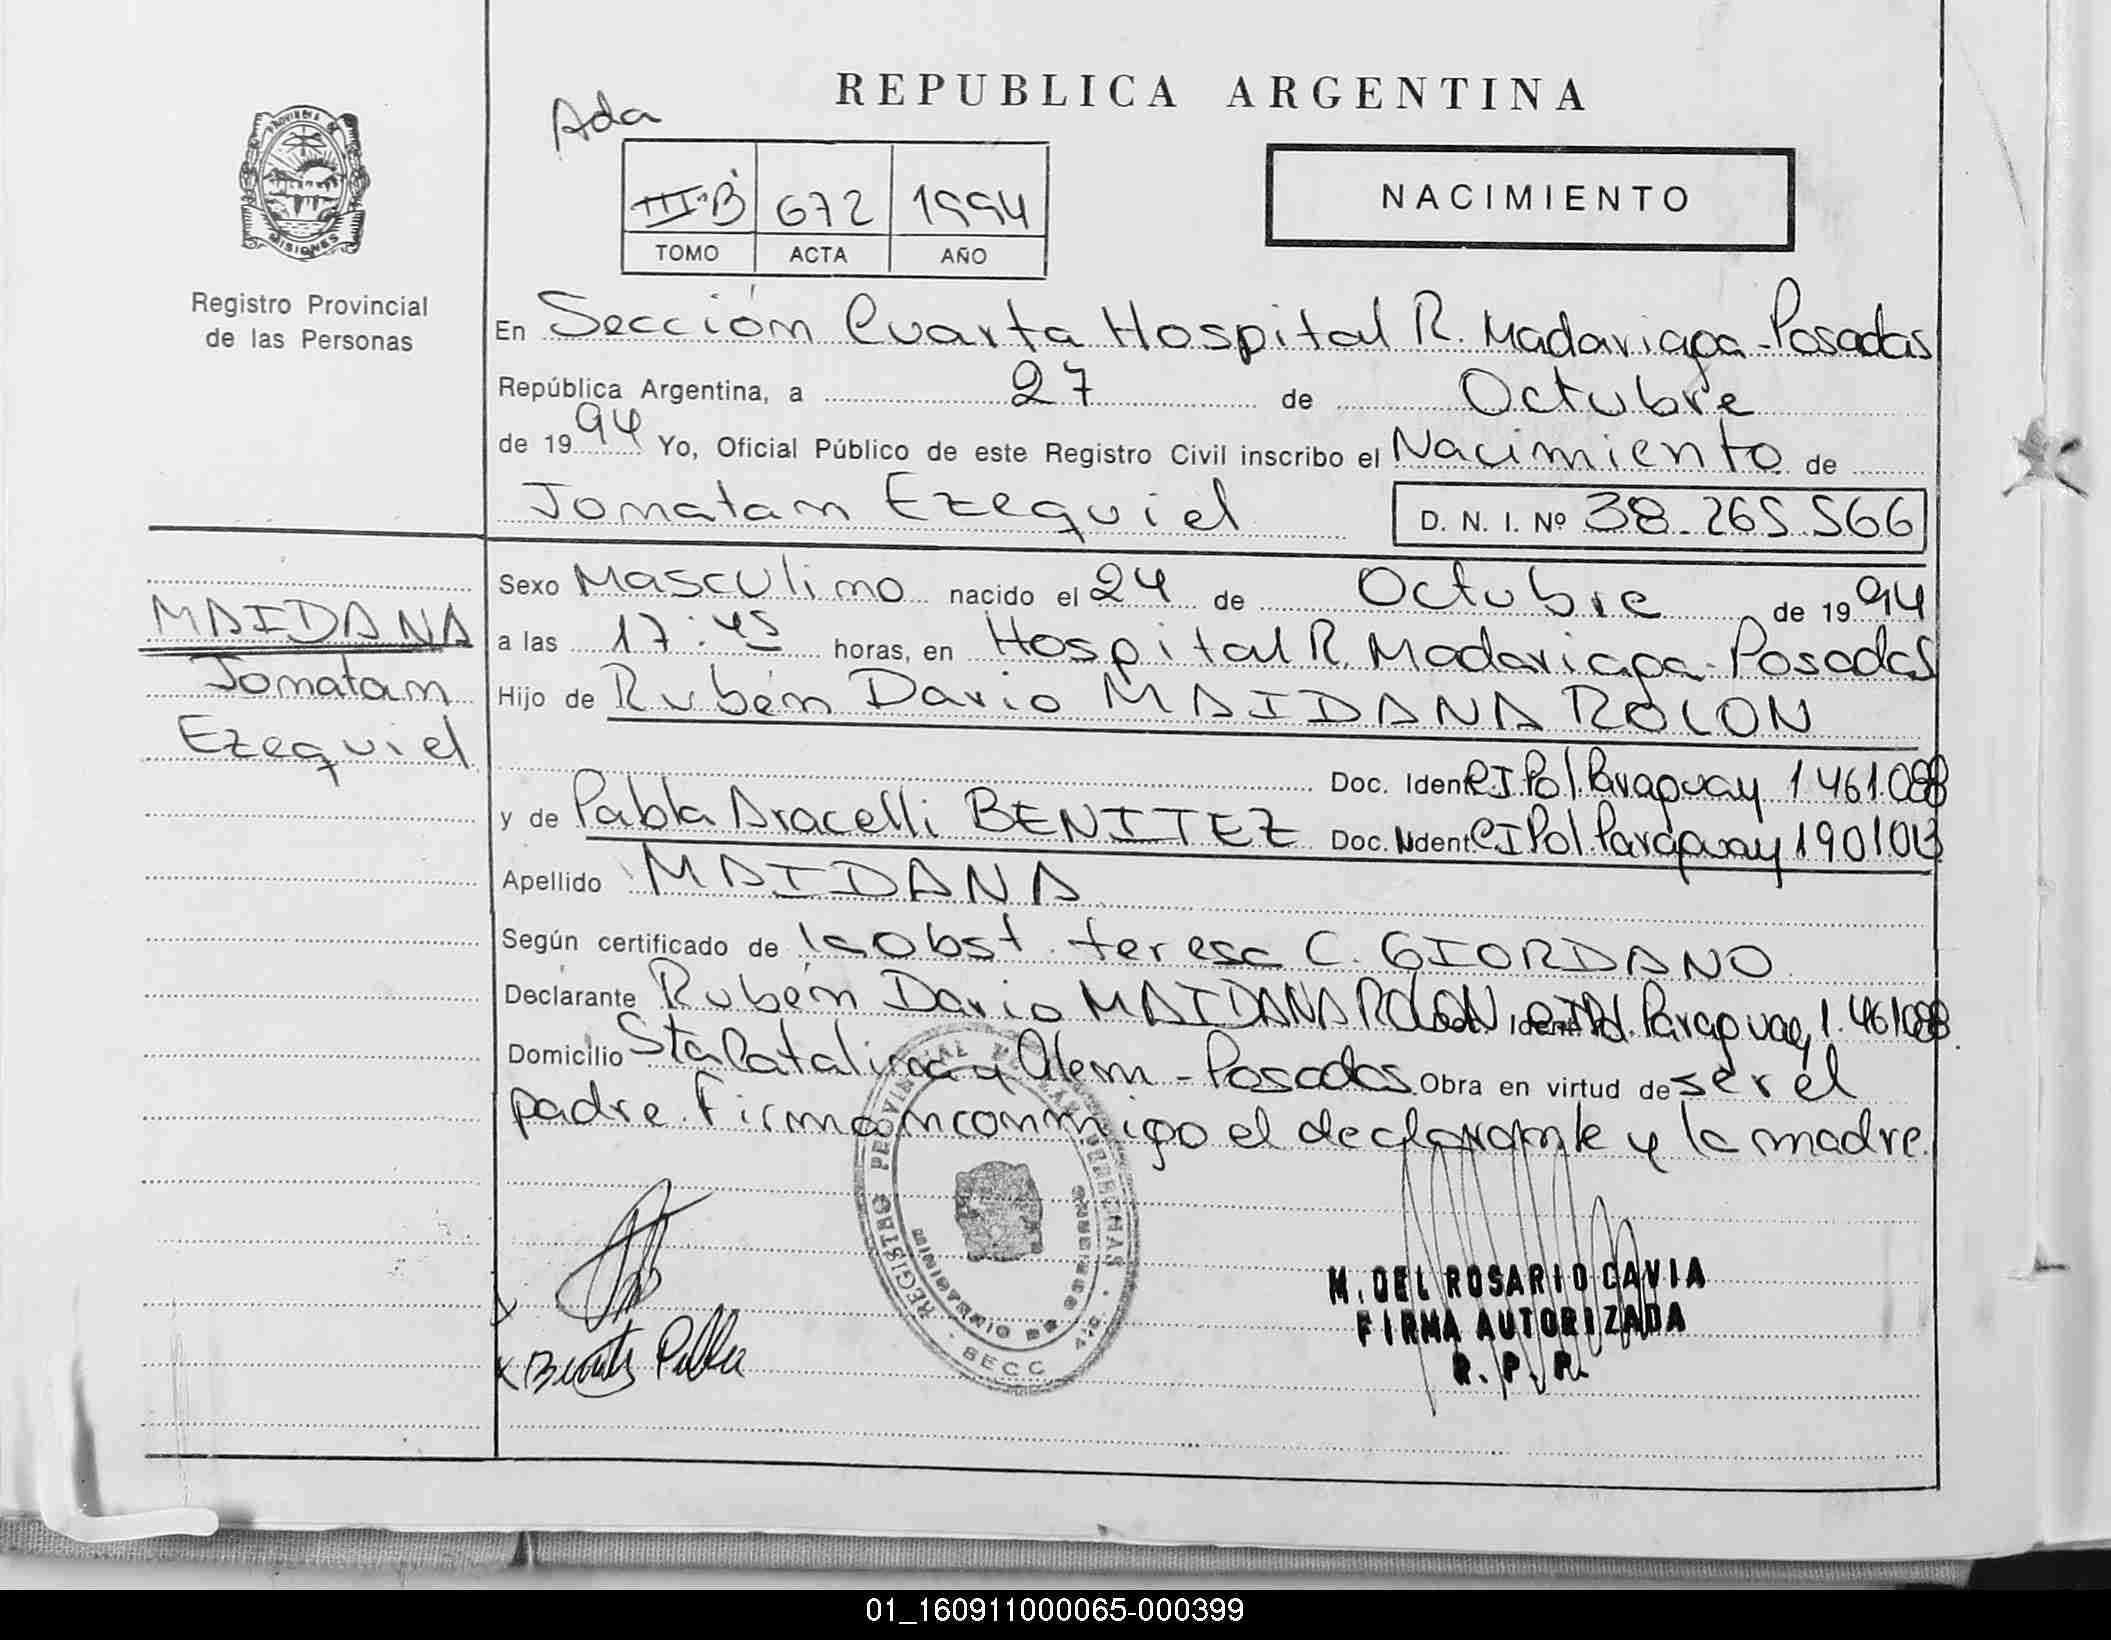 REPUBLICA ARGENTINA
Ada
III-B 672 1994
TOMO ACTA AÑO
NACIMIENTO
PROVINCIA DE
MISIONES
Registro Provincial
de las Personas
En Sección Cuarta Hospital R. Madariaga - Posadas
República Argentina, a 27 de Octubre
de 1994 Yo, Oficial Público de este Registro Civil inscribo el Nacimiento de
Jonatan Ezequiel D. N. I. Nº 38.265.566
Sexo Masculino nacido el 24 de Octubre de 1994
a las 17:45 horas, en Hospital R. Madariaga - Posadas
Hijo de Rubén Dario MAIDANA ROLON
Doc. Ident. C I Pol. Paraguay 1.461.088
y de Pabla Aracelli BENITEZ Doc. Ident. C I Pol. Paraguay 190101
Apellido MAIDANA
Según certificado de la Obst. teresa C. GIORDANO
Declarante Rubén Dario MAIDANA ROLON, Ident. Pol. Paraguay 1.461088
Domicilio Sta Catalina y Alem - Posadas. Obra en virtud de ser el
padre. Firman conmigo el declarante y la madre.
MAIDANA
Jonatan
Ezequiel
REGISTRO PROVINCIAL DE LAS PERSONAS
SECC 4ta
x Benitez Pabla
M. DEL ROSARIO CAVIA
FIRMA AUTORIZADA
R. P. P.
01_160911000065-000399